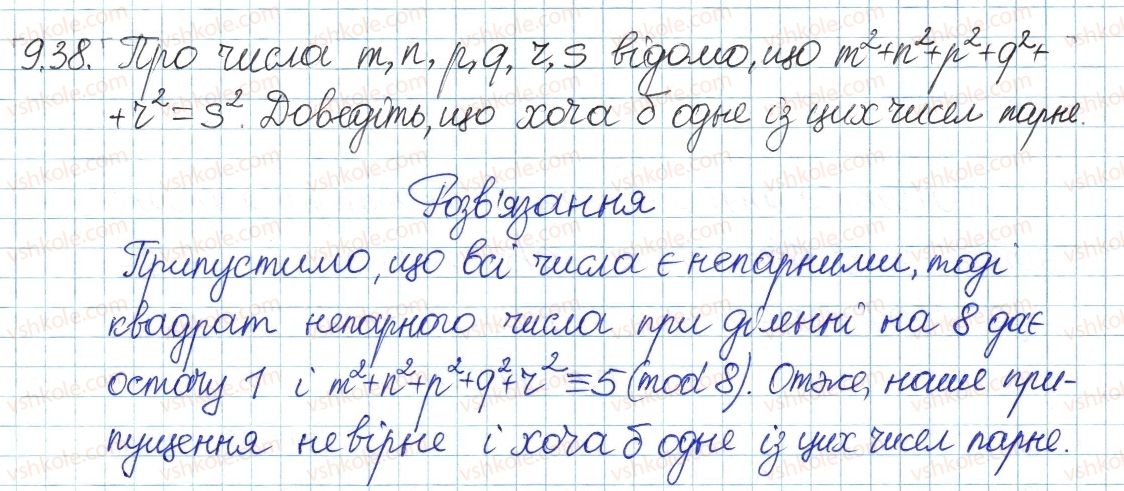 9.38. Про числа m, n, p, q, r, s відомо, що m²+n²+p²+q²+
+r²=s². Доведіть, що хоча б одне із цих чисел парне.
Розв'язання
Припустимо, що всі числа є непарними, тоді
квадрат непарного числа при діленні на 8 дає
остачу 1 і m²+n²+p²+q²+r²≡5 (mod 8). Отже, наше при-
пущення невірне і хоча б одне із цих чисел парне.